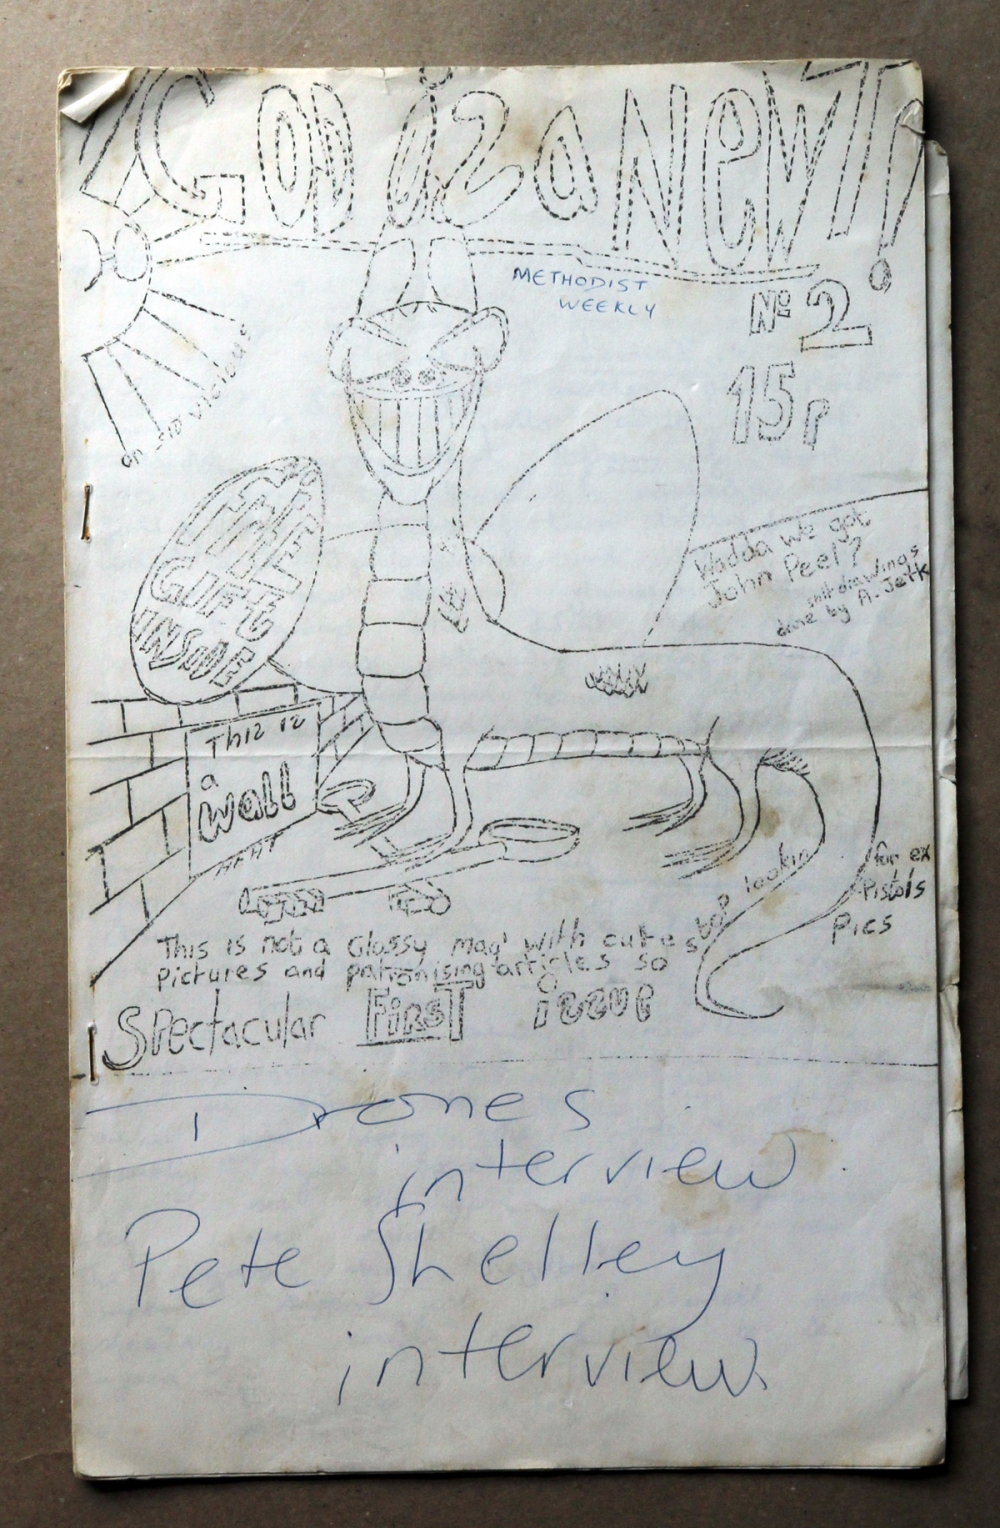 God iz a NewT!
METHODIST
WEEKLY
No 2
15p
on SID vicious
THE
GIFT
INSIDE
Wadda we got
John Peel?
shit drawings
done by A. Jerk
This iz
a
wall
This is not a Glossy Mag' with cute
pictures and patronising articles so
stop lookin for ex
Pistols
Pics
Spectacular FirsT izzue
Drones
interview
Pete Shelley
interview